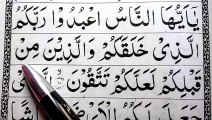 يٰٓاَيُّهَا النَّاسُ اعْبُدُوْا رَبَّكُمُ
الَّذِيْ خَلَقَكُمْ وَالَّذِيْنَ مِنْ
قَبْلِكُمْ لَعَلَّكُمْ تَتَّقُوْنَ
لَكُمُ الْاَرْضَ